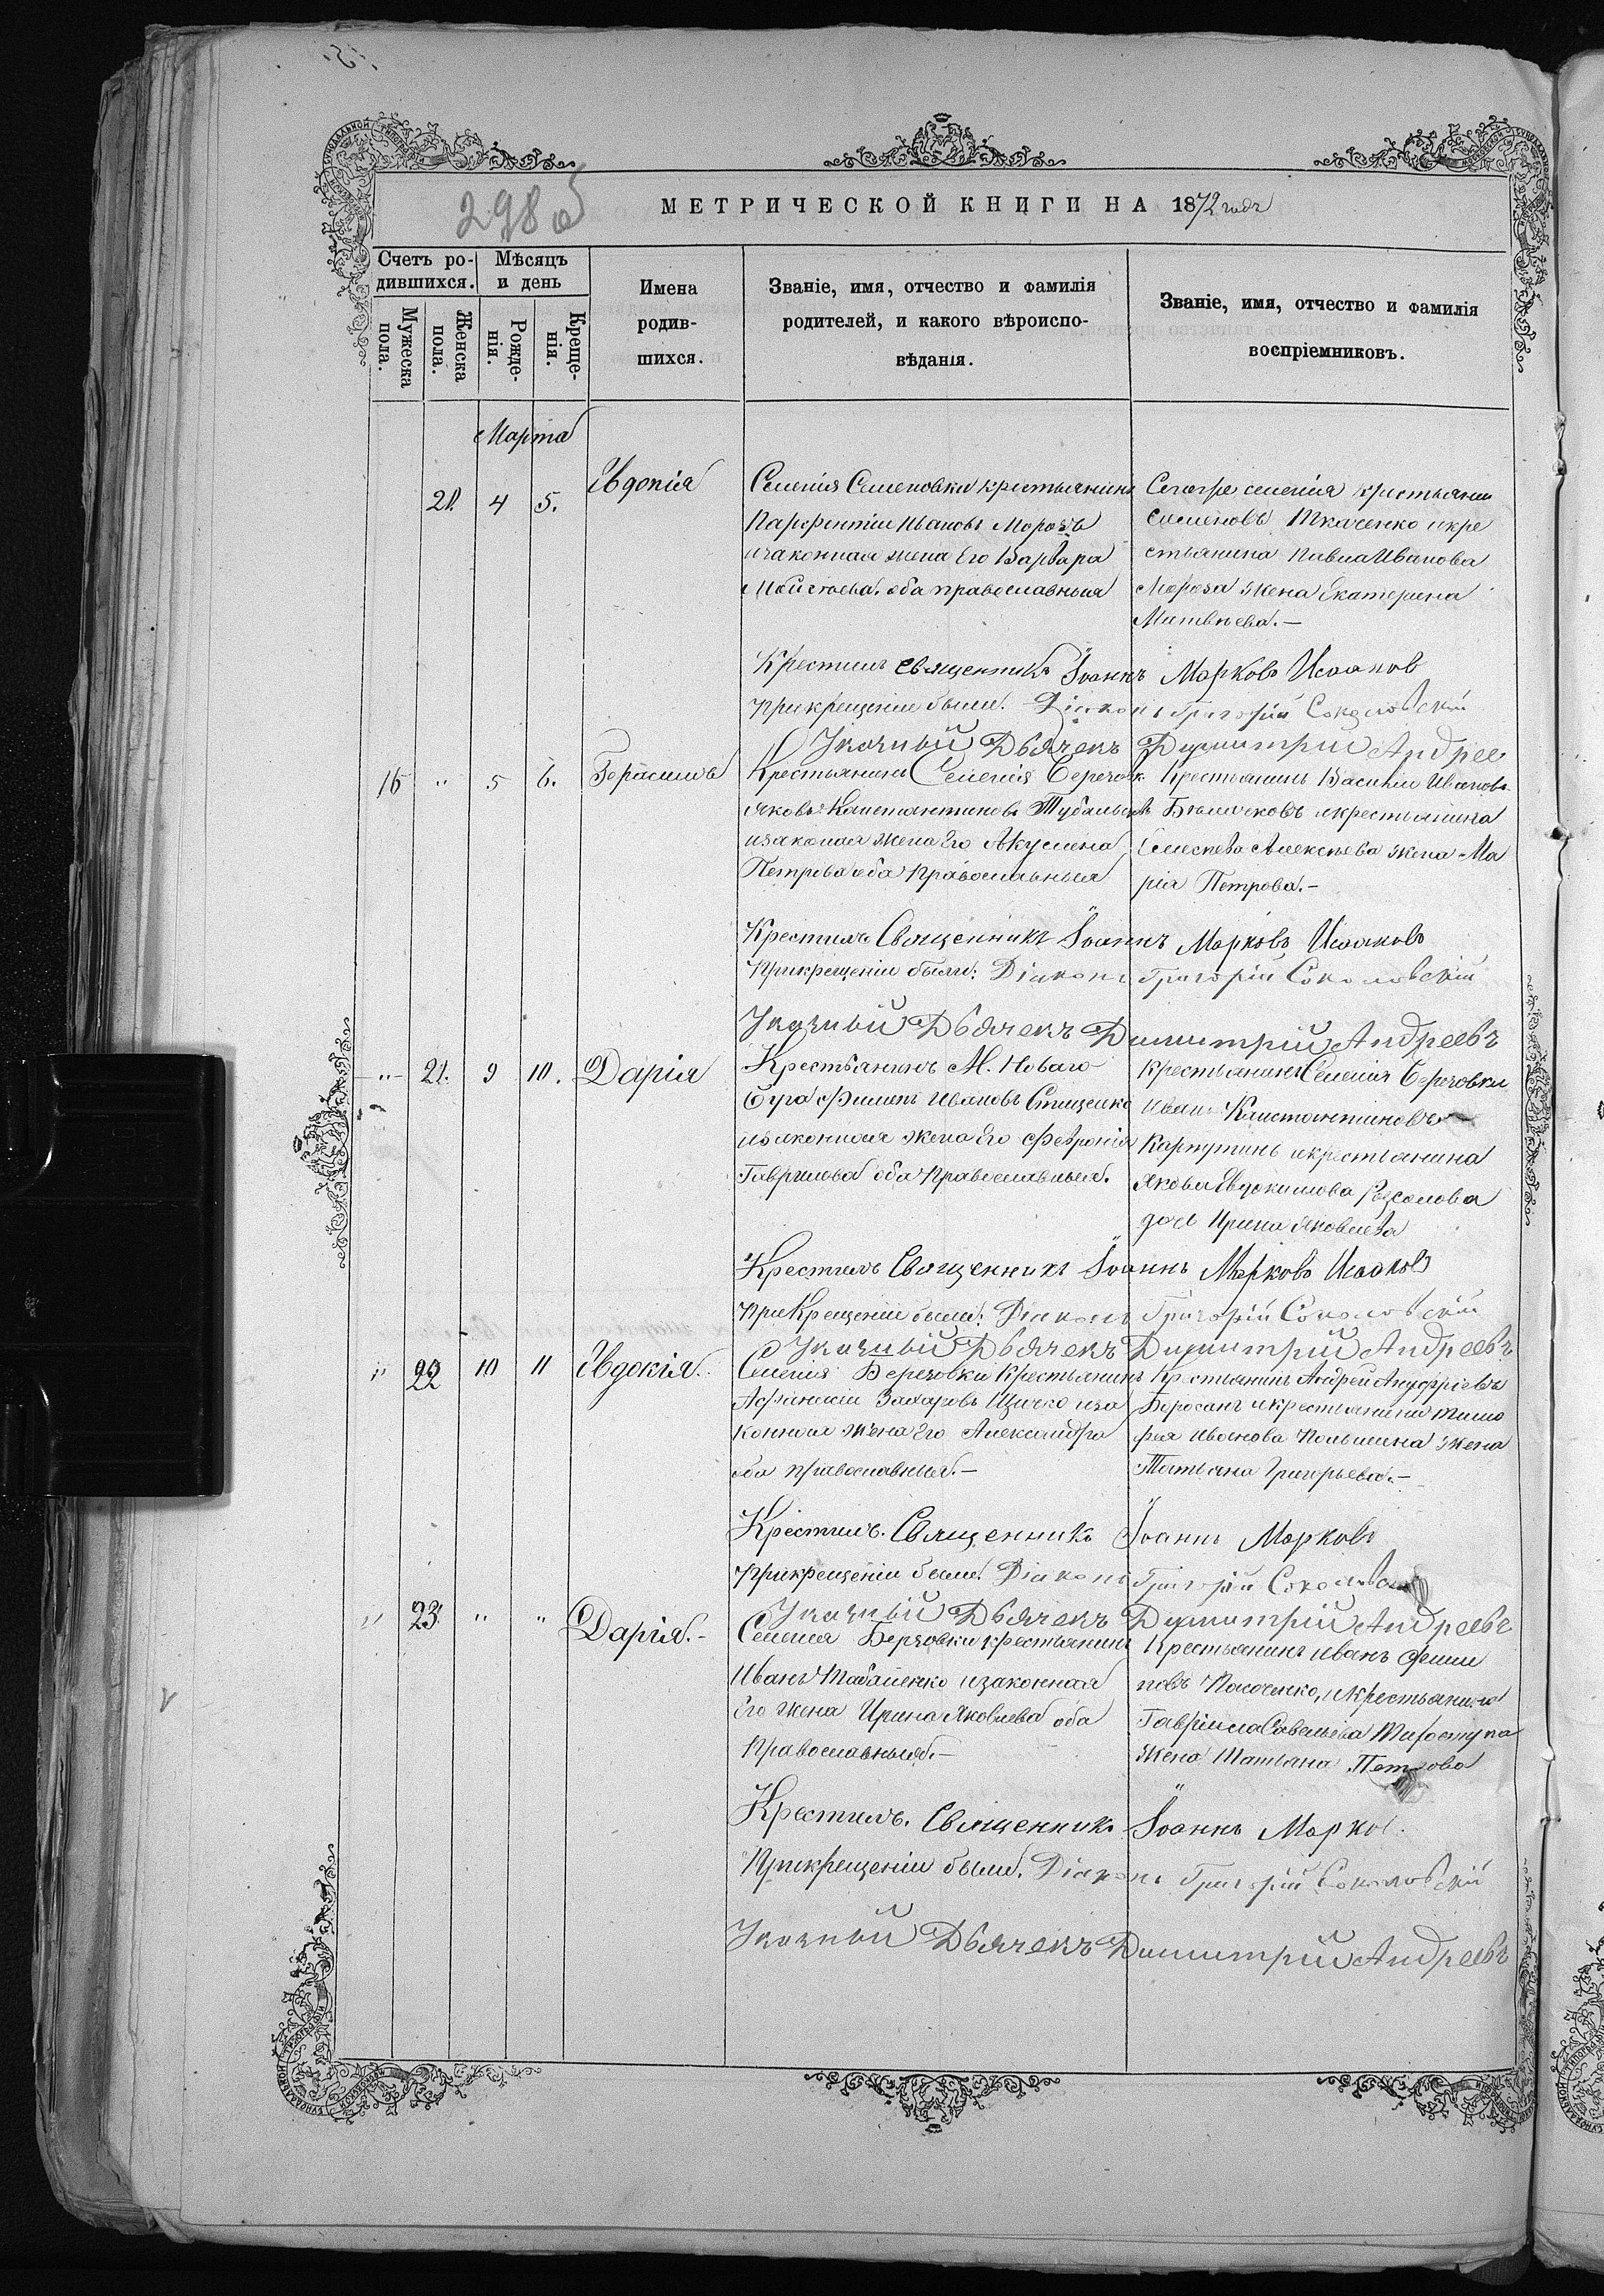 298 об
МЕТРИЧЕСКОЙ КНИГИ НА 1872 годъ
Счетъ родившихся.
Мѣсяцъ и день
Мужеска пола.
Женска пола.
Рожденія.
Крещенія.
Имена родившихся.
Званіе, имя, отчество и фамилія
родителей, и какого вѣроисповѣданія.
Званіе, имя, отчество и фамилія
воспріемниковъ.
Марта
20. 4 5. Евдокія
Селенія Семеновки крестьянинъ
Парфентій Ивановъ Морозъ
изаконная жена Его Варвара
оба православныя
селенія крестьянин
Семеновъ Ткаченко икре
стьянина Павла Иванова
Мороза жена Екатерина
Матвѣева.—
Крестилъ священникъ Іоаннъ Марковъ Исааков
прикрещеніи были: Діаконъ Григорій Соколовскій
Указный Дьячекъ Димитрій Андрее
16 " 5 6. Герасимъ
Крестьянинъ Селенія Березовк
Яковъ Константиновъ
изаконая жена Его Акулина
Петрова оба православныя
Крестьянинъ Василій Ивановъ
икрестьянина
Алексѣева жена Ма
рія Петрова.—
Крестилъ Священникъ Іоаннъ Марковъ Исааковъ
прикрещеніи были: Діаконъ Григорій Соколовскій
Указный Дьячекъ Димитрій Андреевъ
" 21. 9 10. Дарія
Крестьянинъ М. Новаго
Буга Филипъ Ивановъ Стищенко
изаконная жена Его Февронія
Гаврилова оба православныя.
Крестьянинъ Селенія Березовки
Иванъ Константиновъ
икрестьянина
Якова Евдокимова
дочь Ирина Яковлева
Крестилъ Священникъ Іоаннъ Марковъ Исааковъ
при Крещеніи были: Діаконъ Григорій Соколовскій
Указный Дьячекъ Димитрій Андреевъ
" 22 10 11 Евдокія.
Селенія Березовки Крестьянинъ
Афанасій Захаровъ иза
конная жена Его Александра
оба православныя.—
Крестьянинъ Андрей Ануфріевъ
икрестьянина Тимо
фея Иванова жена
Татьяна Григорьева.—
Крестилъ. Священникъ Іоаннъ Марковъ
прикрещеніи были: Діаконъ Григорій Соколовскій
Указный Дьячекъ Димитрій Андреевъ
" 23 " " Дарія.—
Селенія Березовки крестьянинъ
Иванъ изаконная
Его жена Ирина Яковлева оба
православныя.—
Крестьянинъ Иванъ Фили
повъ икрестьянина
Гавріила Савельева
жена Татьяна Петрова
Крестилъ. Священникъ Іоаннъ Марков.
Прикрещеніи были. Діаконъ Григорій Соколовскій
Указный Дьячекъ Димитрій Андреевъ